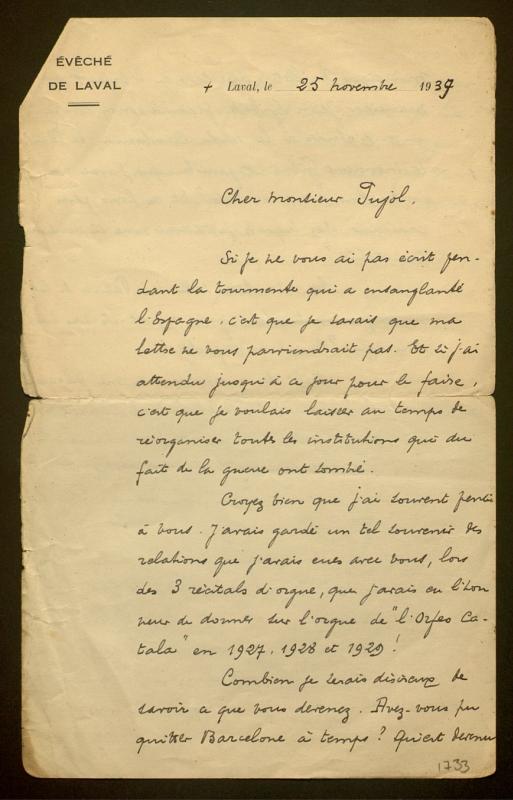 ÉVÊCHÉ
DE LAVAL
+ Laval, le 25 novembre 1939
Cher Monsieur Pujol,
Si je ne vous ai pas écrit pen-
dant la tourmente qui a ensanglanté
l'Espagne, c'est que je savais que ma
lettre ne vous parviendrait pas. Et si j'ai
attendu jusqu'à ce jour pour le faire,
c'est que je voulais laisser au temps de
réorganiser toutes les institutions qui du
fait de la guerre ont sombré.
Croyez bien que j'ai souvent pensé
à vous. J'avais gardé un tel souvenir des
relations que j'avais eues avec vous, lors
des 3 récitals d'orgue, que j'avais eu l'hon
neur de donner sur l'orgue de "l'Orfeo Ca-
tala" en 1927, 1928 et 1929!
Combien je serais désireux de
savoir ce que vous devenez. Avez-vous pu
quitter Barcelone à temps? Qu'est devenu
1733